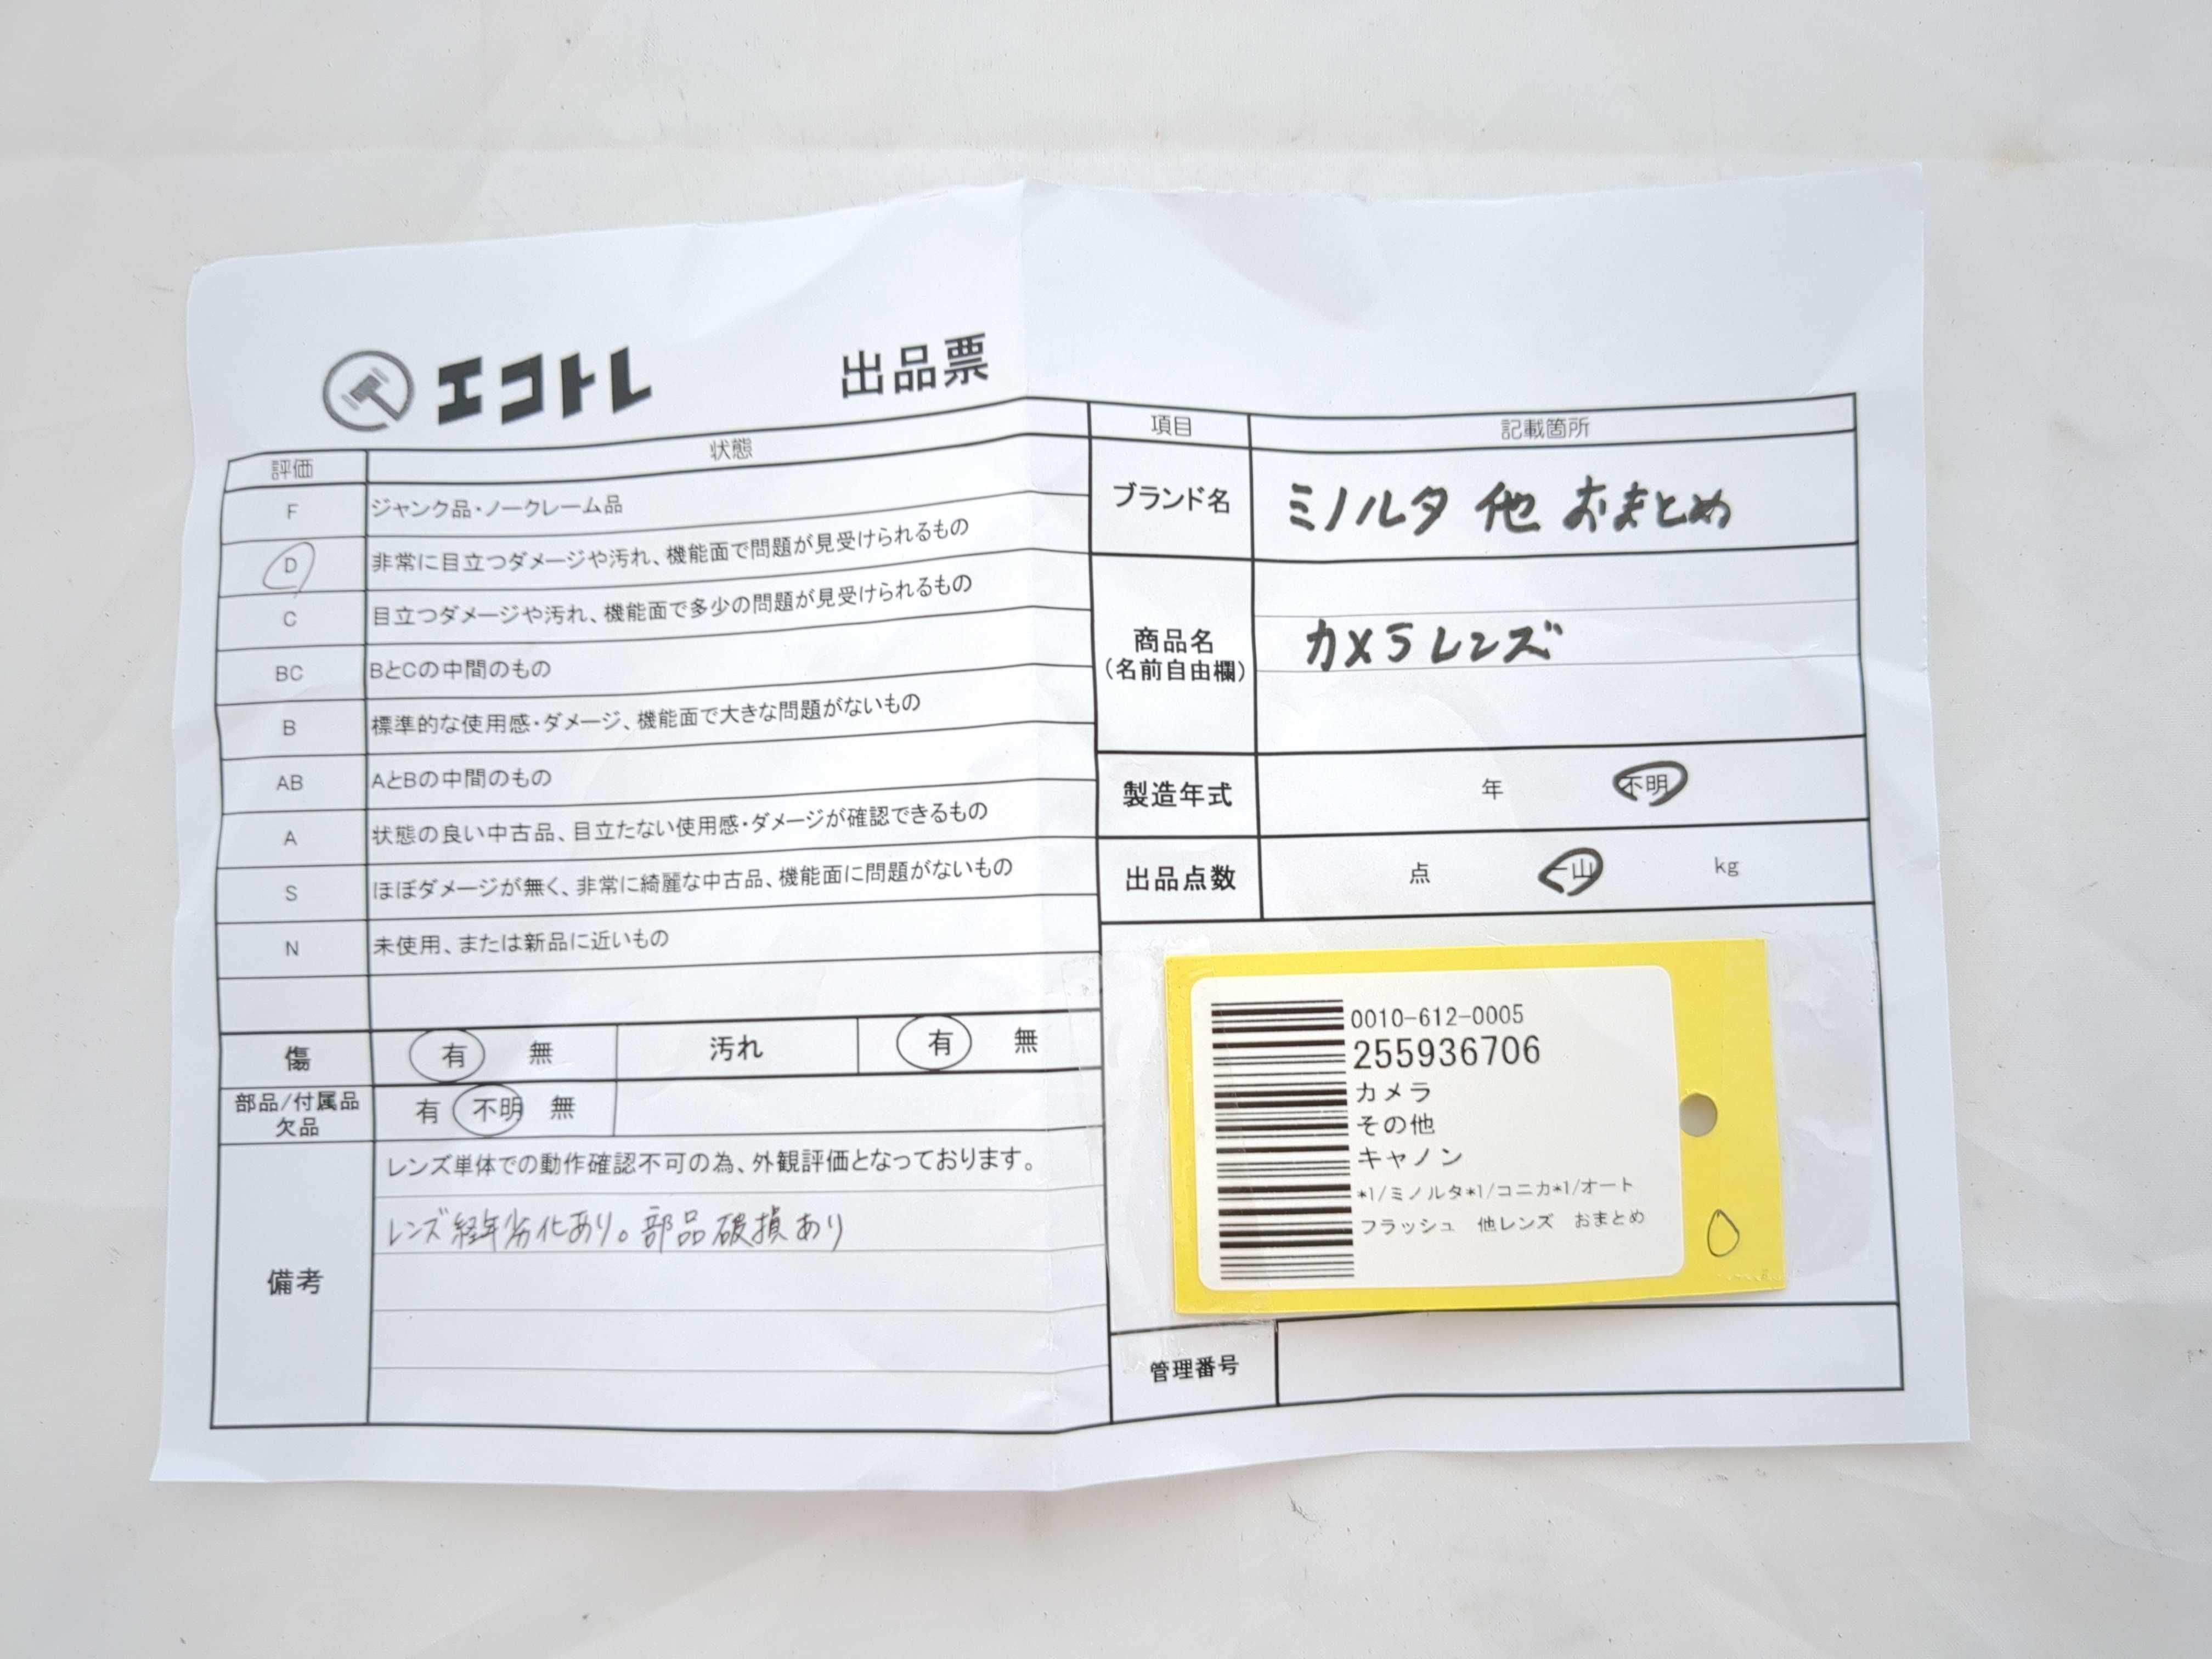 エコトレ 出品票
評価 状態
F ジャンク品・ノークレーム品
D 非常に目立つダメージや汚れ、機能面で問題が見受けられるもの
C 目立つダメージや汚れ、機能面で多少の問題が見受けられるもの
BC BとCの中間のもの
B 標準的な使用感・ダメージ、機能面で大きな問題がないもの
AB AとBの中間のもの
A 状態の良い中古品、目立たない使用感・ダメージが確認できるもの
S ほぼダメージが無く、非常に綺麗な中古品、機能面に問題がないもの
N 未使用、または新品に近いもの
傷 有 無 汚れ 有 無
部品/付属品 有 不明 無
欠品
備考
レンズ単体での動作確認不可の為、外観評価となっております。
レンズ経年劣化あり。部品破損あり
項目 記載箇所
ブランド名 ミノルタ 他 おまとめ
商品名 カメラレンズ
(名前自由欄)
製造年式 年 不明
出品点数 点 一山 kg
0010-612-0005
255936706
カメラ
その他
キャノン
*1/ミノルタ*1/コニカ*1/オート
フラッシュ 他レンズ おまとめ
管理番号